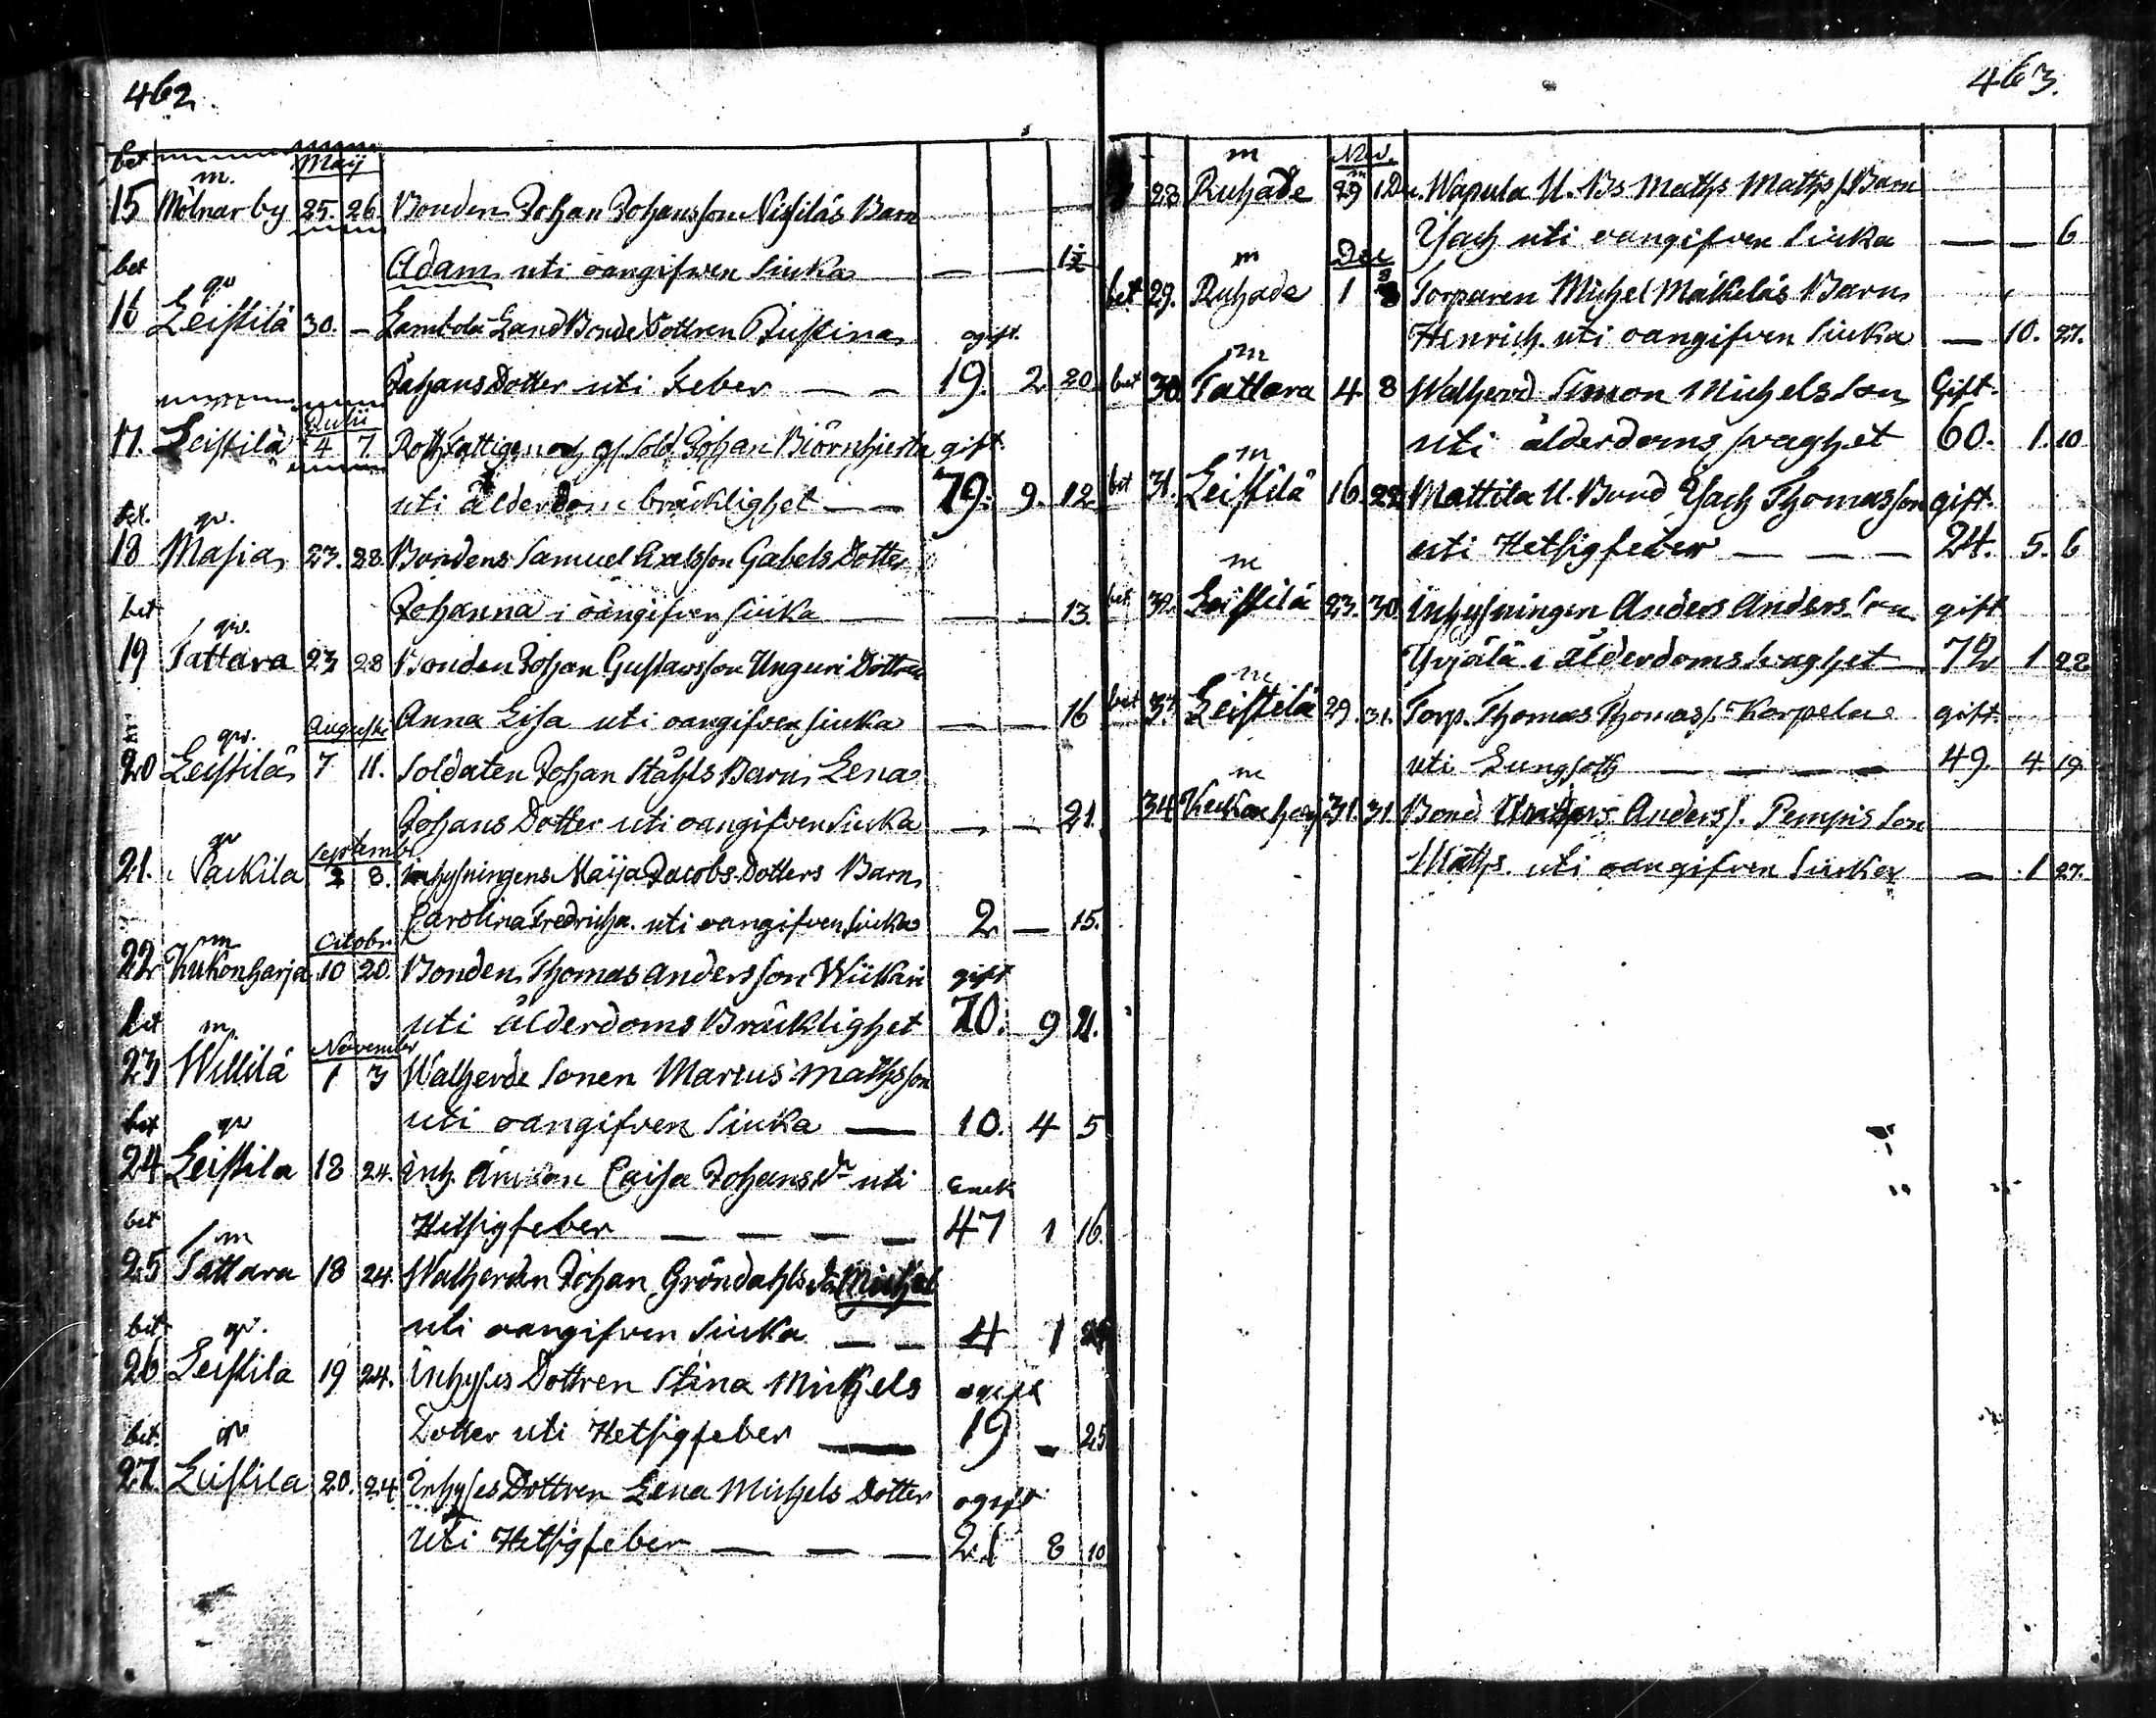 462
bet Maij
m.
15 Mölnarby 25. 26. Bonden Johan Johansson Nissiläs Barn
Adam uti oangifven siuka — — 12
bet qv
16 Leistilä 30. — Lambola Land Bonde Dottren Justina ogift.
Johans Dotter uti Feber — — 19. 2 20.
Julii
17. Leistilä 4 7 Rothfattigen och gl. Sold. Johan Biörnhierta gift.
uti ålderdoms bräcklighet — — 79. 9. 12.
bet. qv.
18 Masia 23. 28. Bondens Samuel Axelsson Gabels Dotter
Johanna i oangifven siuka — — — 13
bet qv.
19 Tattara 23 28 Bonden Johan Gustavsson Unguri Dottren
Anna Lisa uti oangifven siuka — — 16
bet qv. Augusti
20 Leistilä 7 11. Soldaten Johan Ståhls Barn Lena
Johans Dotter uti oangifven siuka — — 21.
qv September
21. Nackila 2 8. inhysningens Maija Jacobs Dotters Barn
Carolina Fredricha. uti oangifven siuka 2 — 15.
m Octobr.
22 Kukonharja 10 20. Bonden Thomas Andersson Wiikari gift
uti ålderdoms Bräcklighet 70. 9 21.
bet m. November
23 Willilä 1 3 Walherde Sonen Marcus Mathsson
uti oangifven siuka — 10. 4 5
bet qv
24 Leistila 18 24. Inh. Änkan Caisa Johans dr uti Enck
Hetsigfeber — — — — 47 1 16.
bet m
25 Tattara 18 24. Walherden Johan Gröndahls Son Michel
uti oangifven siuka — — 4 1
bet qv.
26 Leistila 19 24. Inhyses Dottren Stina Michels ogift
Dotter uti Hetsigfeber — 19 — 25
bet. qv
27. Leistila 20. 24 Inhyses Dottren Lena Michels Dotter ogift
uti Hetsigfeber — — — 21 8 10
463.
m Nov.
28 Ruhade 29 1 De. Wapula U. Bs Maths Maths s. Barn
Isach uti oangifven siuka — — 6
m Dec
bet 29. Ruhade 1 8 Torparen Michel Mäkiläs Barn
Henrich. uti oangifven siuka — 10. 27.
m
bet 30. Tattara 4 8 Walherd Simon Michelsson Gift.
uti ålderdoms svaghet 60. 1. 10
m
bet 31. Leistilä 16. 22 Mattila U. Bond Isach Thomasson gift.
uti Hetsigfeber — — — 24. 5. 6
m
bet 32. Leistilä 23. 30. Inhysningen Anders Anders Son gift
Yrjälä i ålderdoms svaghet — 72 1 22
m
bet 33. Leistilä 29. 31. Torp. Thomas Thomass. Korpela gift.
uti Lungsoth — — — — 49. 4. 19.
m
34 Kukonharj 31. 31. Bond Anders s. Pempis Son
Maths. uti oangifven siuka — 1 27.